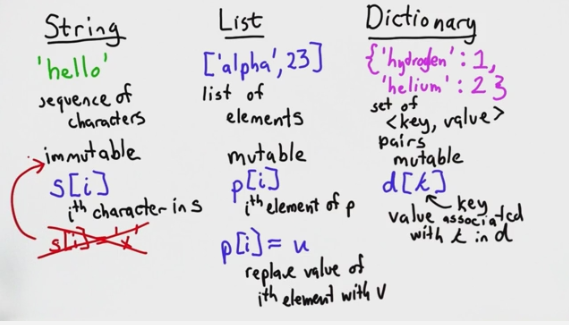 String
'hello'
sequence of
characters
immutable
s[i]
ith character in s
s[i] = 'x'
List
['alpha', 23]
list of
elements
mutable
p[i]
ith element of p
p[i] = u
replace value of
ith element with v
Dictionary
{'hydrogen': 1,
'helium': 23
set of
<key, value>
pairs
mutable
d[k]
key
value associated
with k in d